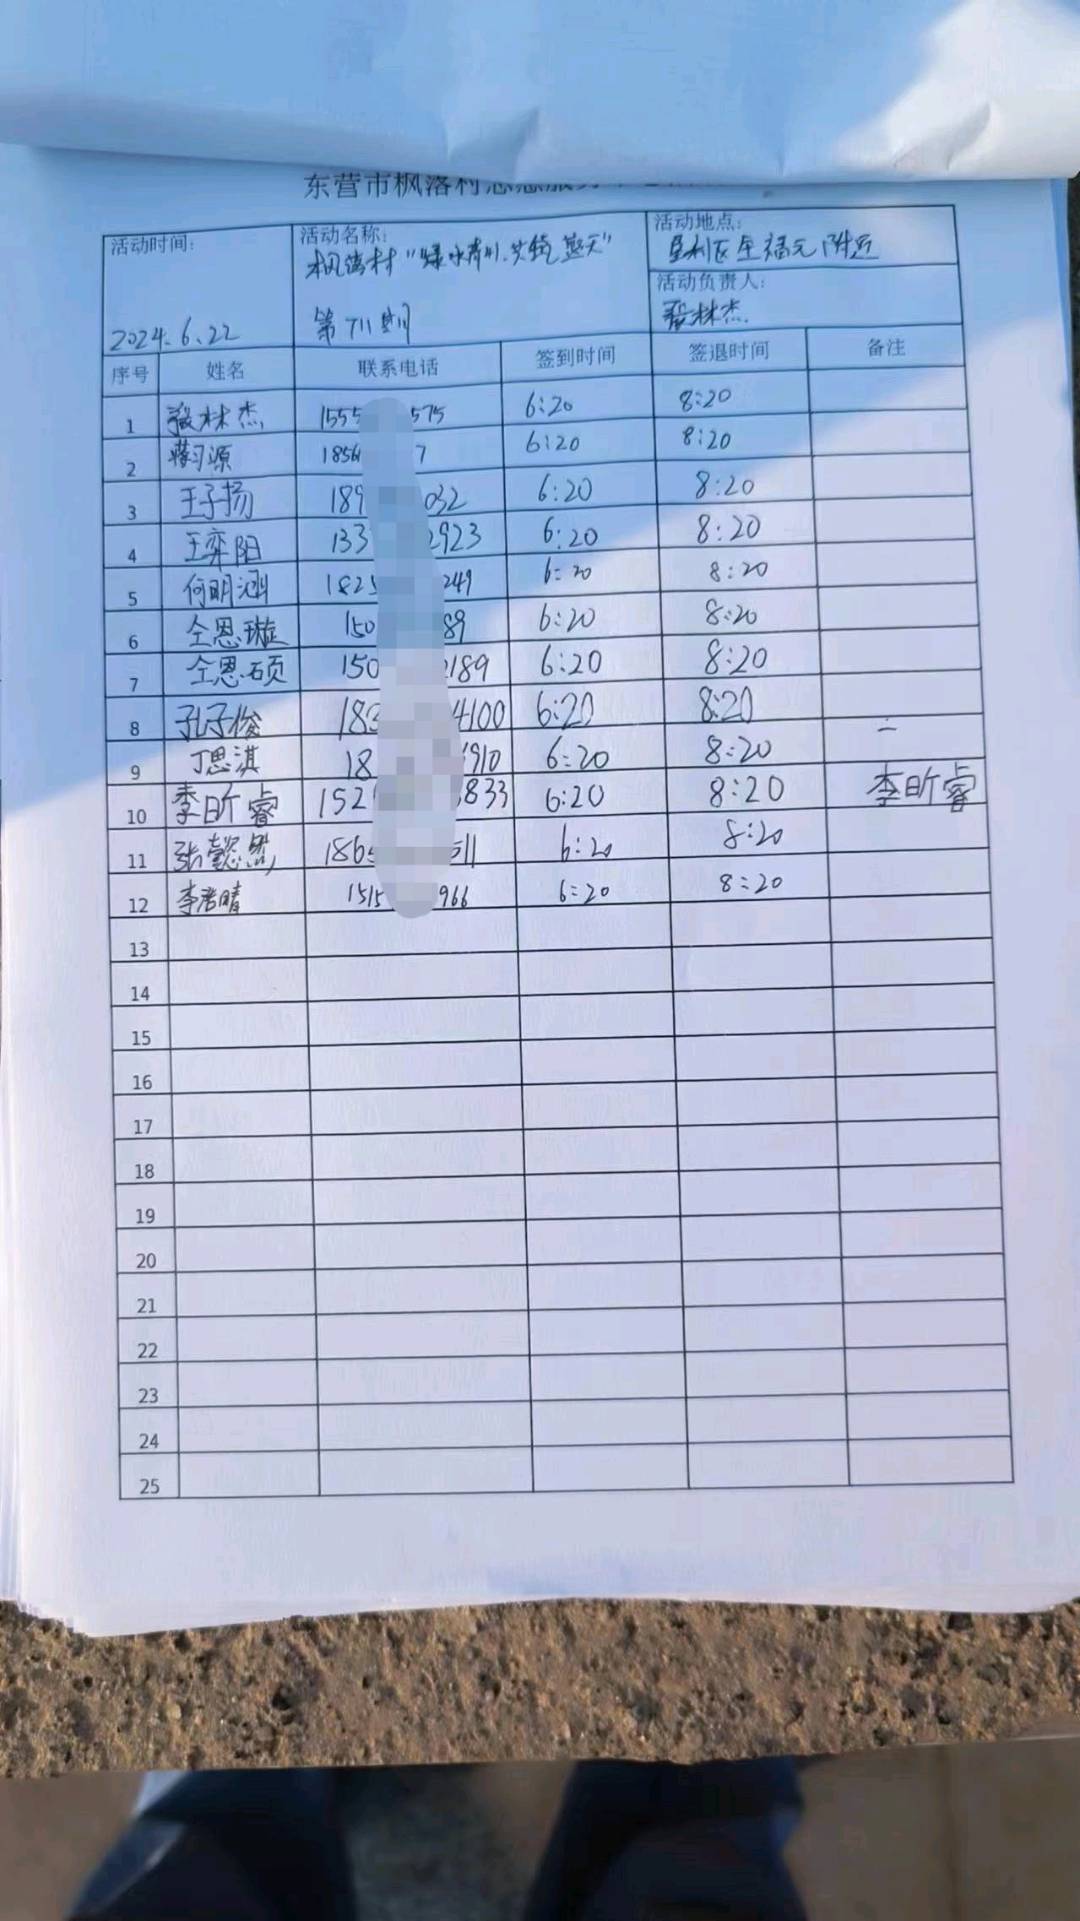 东营市枫落村志愿服务
活动时间: 活动名称: 活动地点:
枫落村“绿水青山、共筑蓝天” 垦利区全福元附近
活动负责人:
2024.6.22 第711期 张林杰
序号 姓名 联系电话 签到时间 签退时间 备注
1 张林杰 1555 575 6:20 8:20
2 源 1856 7 6:20 8:20
3 王子扬 189 032 6:20 8:20
4 王奕阳 133 2923 6:20 8:20
5 何明涵 1825 249 6:20 8:20
6 仝恩璇 150 89 6:20 8:20
7 仝恩硕 150 2189 6:20 8:20
8 孔子俊 183 4100 6:20 8:20
9 丁思淇 18 910 6:20 8:20
10 李昕睿 152 833 6:20 8:20 李昕睿
11 张懿然 1865 511 6:20 8:20
12 李浩晴 1515 966 6:20 8:20
13
14
15
16
17
18
19
20
21
22
23
24
25